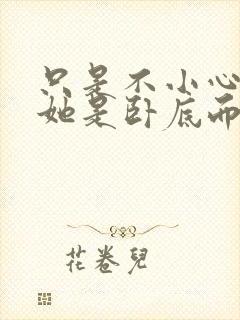 只是不小心
她是卧底而
花卷兒